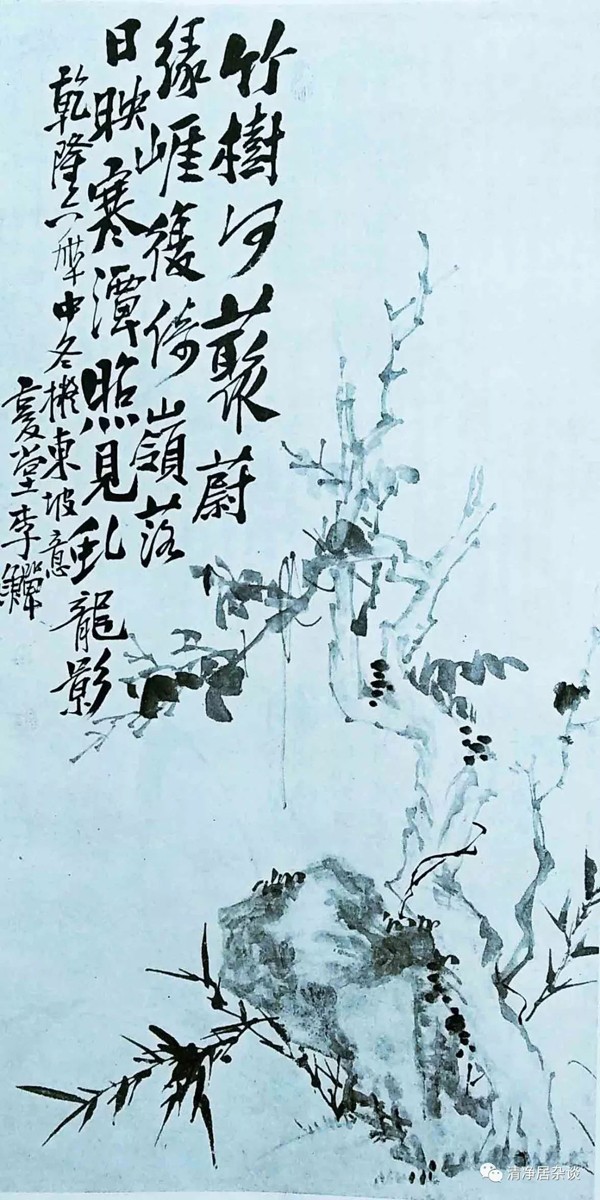 竹樹何藂蔚
緣崕復倚嶺落
日映寒潭照見虬龍影
乾隆六年中冬擬東坡意
复堂李鱓
清净居杂谈